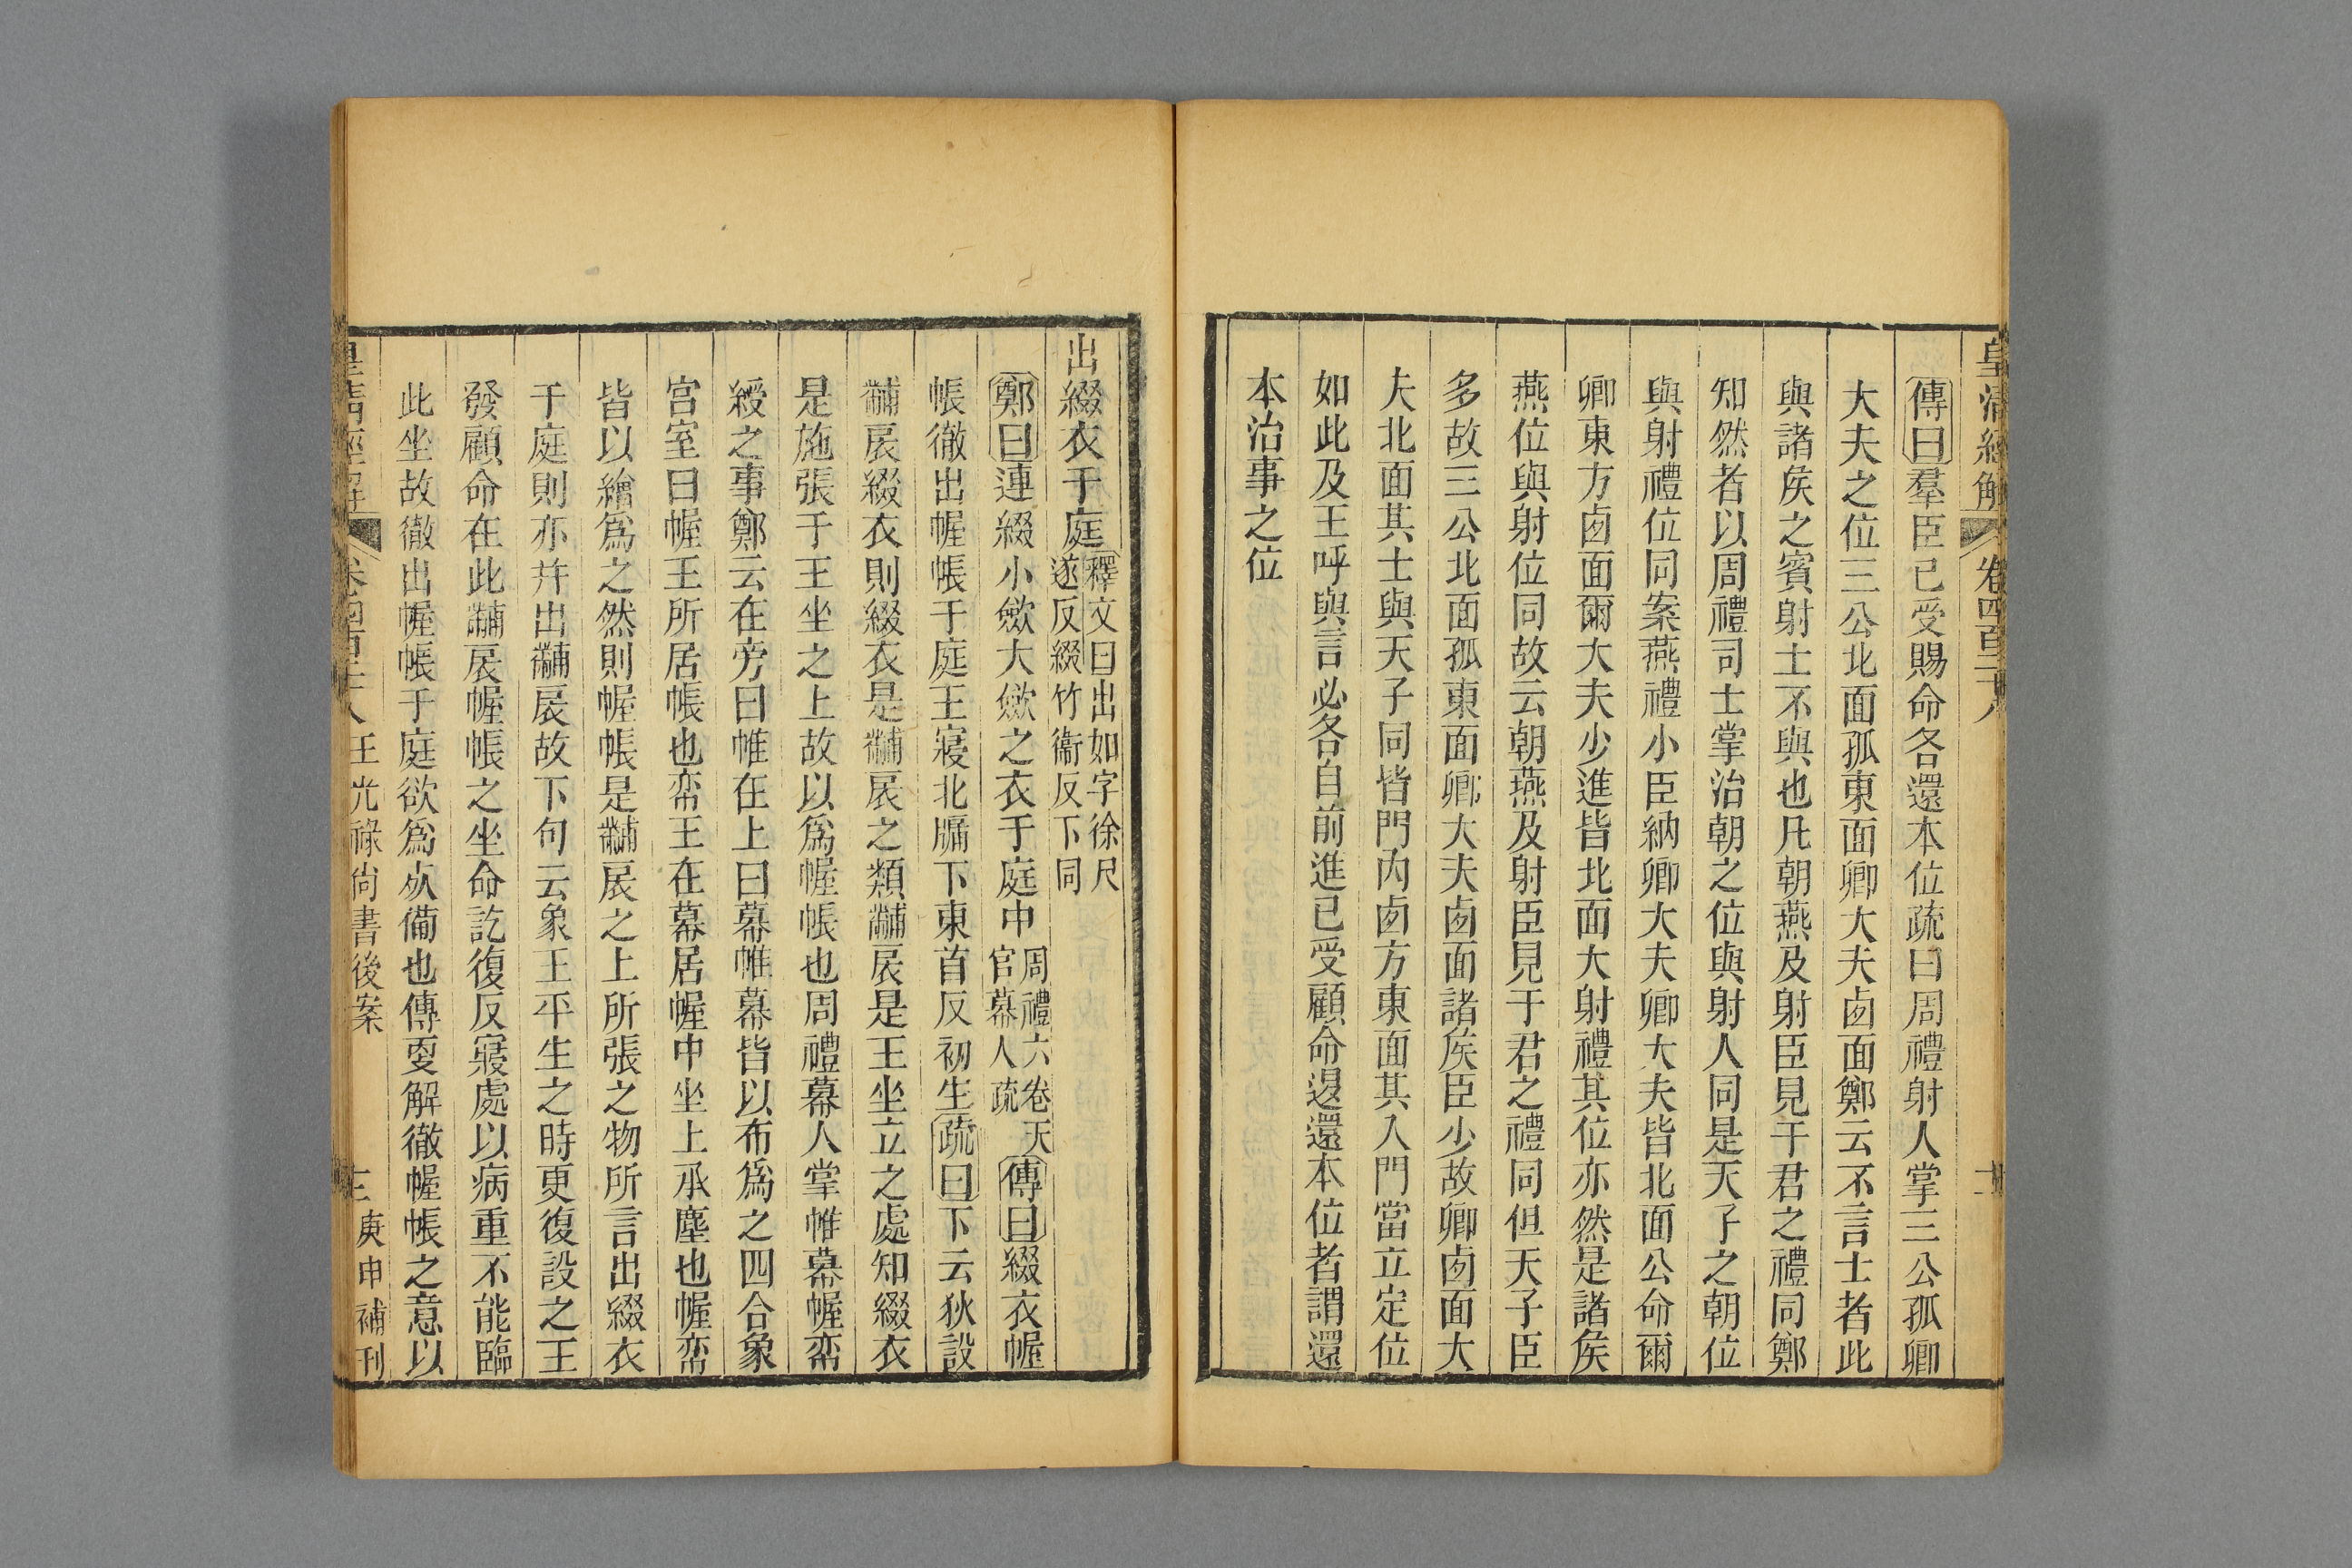 皇清經解 卷四百二十八 十二
傳曰羣臣已受賜命各還本位疏曰周禮射人掌三公孤卿
大夫之位三公北面孤東面卿大夫卥面鄭云不言士者此
與諸矦之賓射士不與也凡朝燕及射臣見于君之禮同鄭
知然者以周禮司士掌治朝之位與射人同是天子之朝位
與射禮位同案燕禮小臣納卿大夫卿大夫皆北面公命爾
卿東方卥面爾大夫少進皆北面大射禮其位亦然是諸矦
燕位與射位同故云朝燕及射臣見于君之禮同但天子臣
多故三公北面孤東面卿大夫卥面諸矦臣少故卿卥面大
夫北面其士與天子同皆門內卥方東面其入門當立定位
如此及王呼與言必各自前進已受顧命退還本位者謂還
本治事之位
出綴衣于庭釋文曰出如字徐尺
遂反綴竹衞反下同
鄭曰連綴小歛大歛之衣于庭中周禮六卷天
官幕人疏傳曰綴衣幄
帳徹出幄帳于庭王寢北牖下東首反初生疏曰下云狄設
黼扆綴衣則綴衣是黼扆之類黼扆是王坐立之處知綴衣
是施張于王坐之上故以爲幄帳也周禮幕人掌帷幕幄帟
綬之事鄭云在旁曰帷在上曰幕帷幕皆以布爲之四合象
宮室曰幄王所居帳也帟王在幕居幄中坐上承塵也幄帟
皆以繒爲之然則幄帳是黼扆之上所張之物所言出綴衣
于庭則亦并出黼扆故下句云象王平生之時更復設之王
發顧命在此黼扆幄帳之坐命訖復反寢處以病重不能臨
此坐故徹出幄帳于庭欲爲𣦸備也傳更解徹幄帳之意以
皇清經解 卷四百二十八 王光祿尚書後案 三 庚申補刊